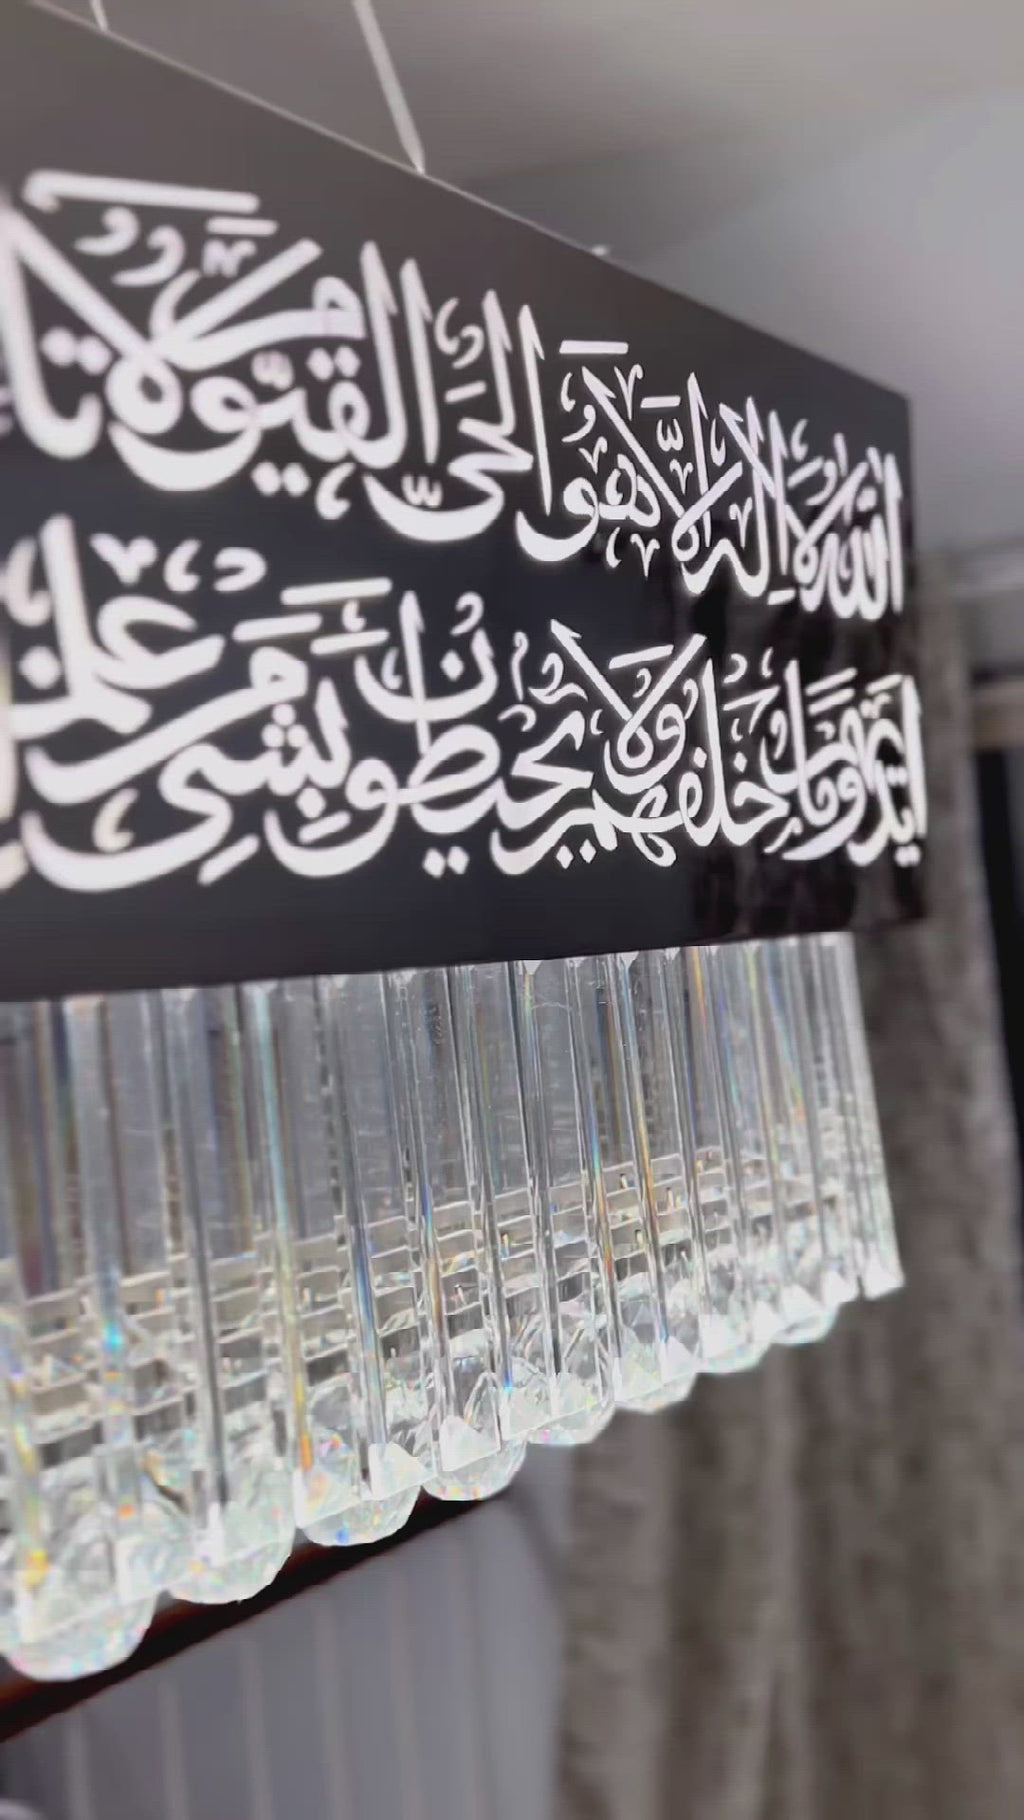 اللَّهُ لَا إِلَٰهَ إِلَّا هُوَ الْحَيُّ الْقَيُّومُ لَا تَا
أَيْدِيهِمْ وَمَا خَلْفَهُمْ وَلَا يُحِيطُونَ بِشَيْءٍ مِنْ عِلْمِ